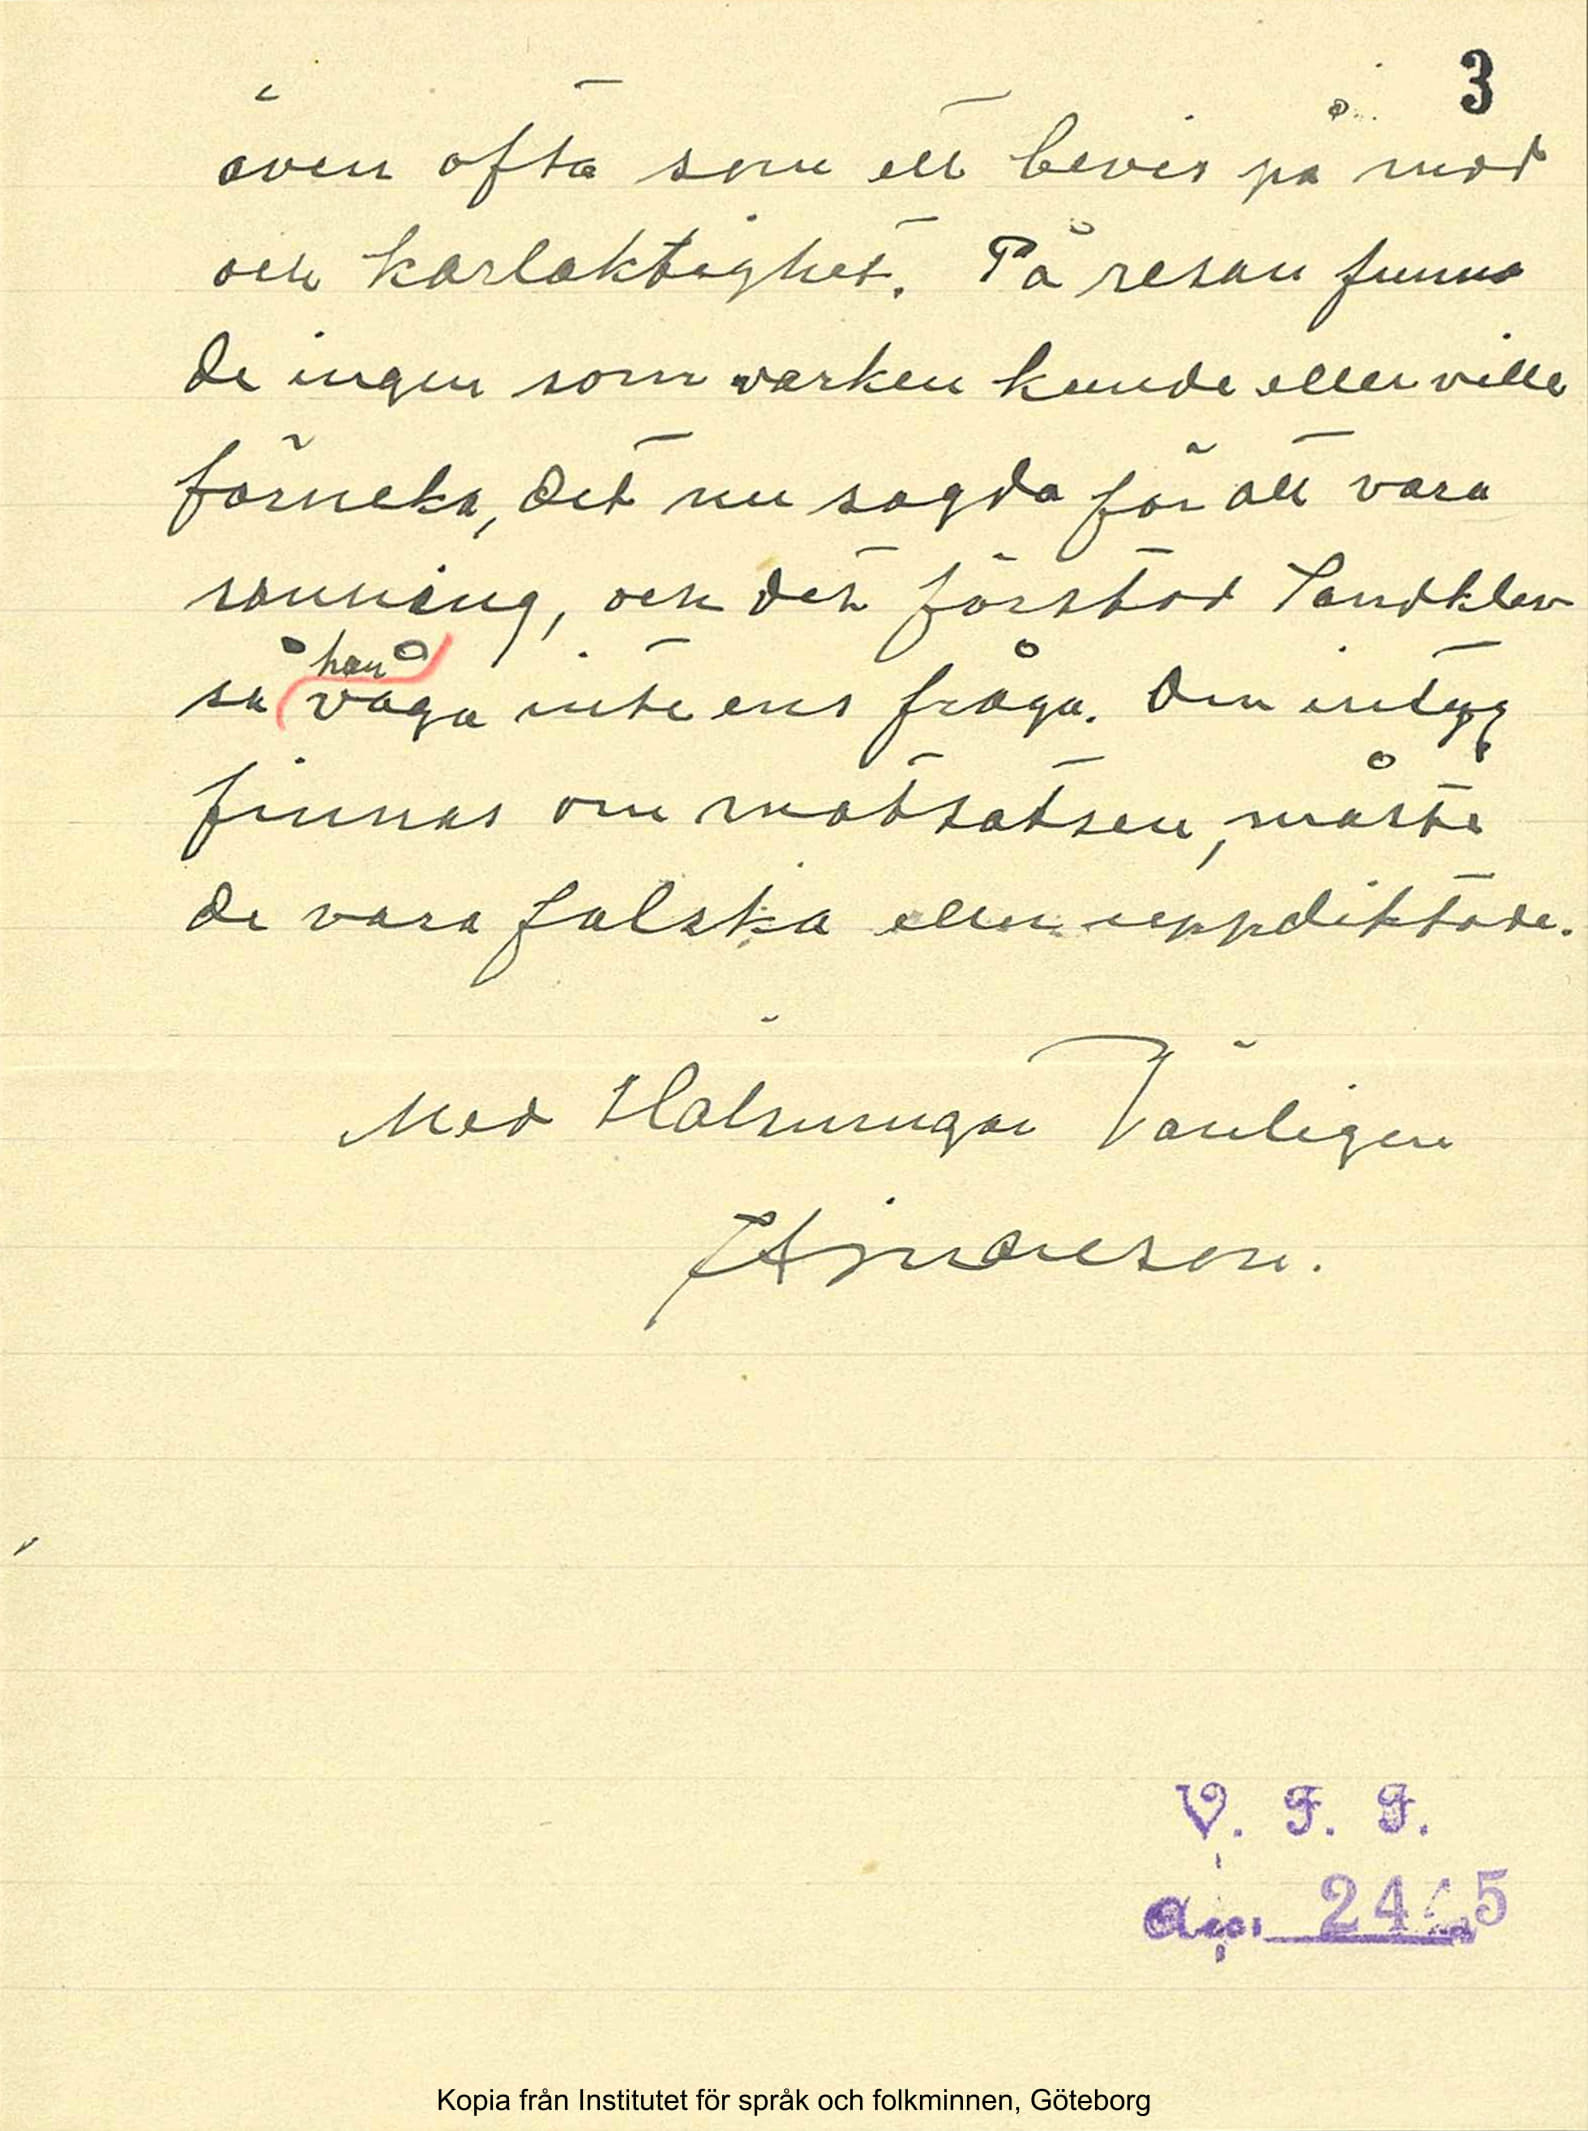 3
även ofta som ett bevis på mod
och karlaktighet. På resan funno
de ingen som varken kunde eller ville
förneka, det nu sagda för att vara
sanning, och det förstod Sandklev
så han våga inte ens fråga. Om intyg
finnas om motsatsen, måste
de vara falska eller uppdiktade.
Med Hälsningar Vänligen
V. F. F.
Kopia från Institutet för språk och folkminnen, Göteborg